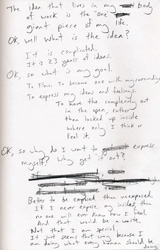 The idea that lives in my body
of work is the one
giant piece of my life.
OK, well what is the idea?
It is complicated.
It is 23 years of ideas.
OK, so what is my goal.
To Flow. To become one with my surroundings
To express my ideas and feelings.
To have the complexity out
in the open, rather
than locked up inside
where only I think or
feel it.
OK, so why do I want to express
myself? Why get it out?
Better to be expressed than unexpressed.
If I never express my ideas, then
no one will ever know how I feel
And that would be a waste.
Not that I am special.
I just sense that way because I
am doing what every human should be
doing